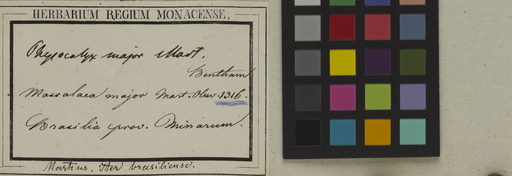 HERBARIUM REGIUM MONACENSE.
Physocalyx major Mart.
Bentham
major Mart. Obs. 1316.
Brasilia prov. Minarum.
Martius. Iter brasiliense.